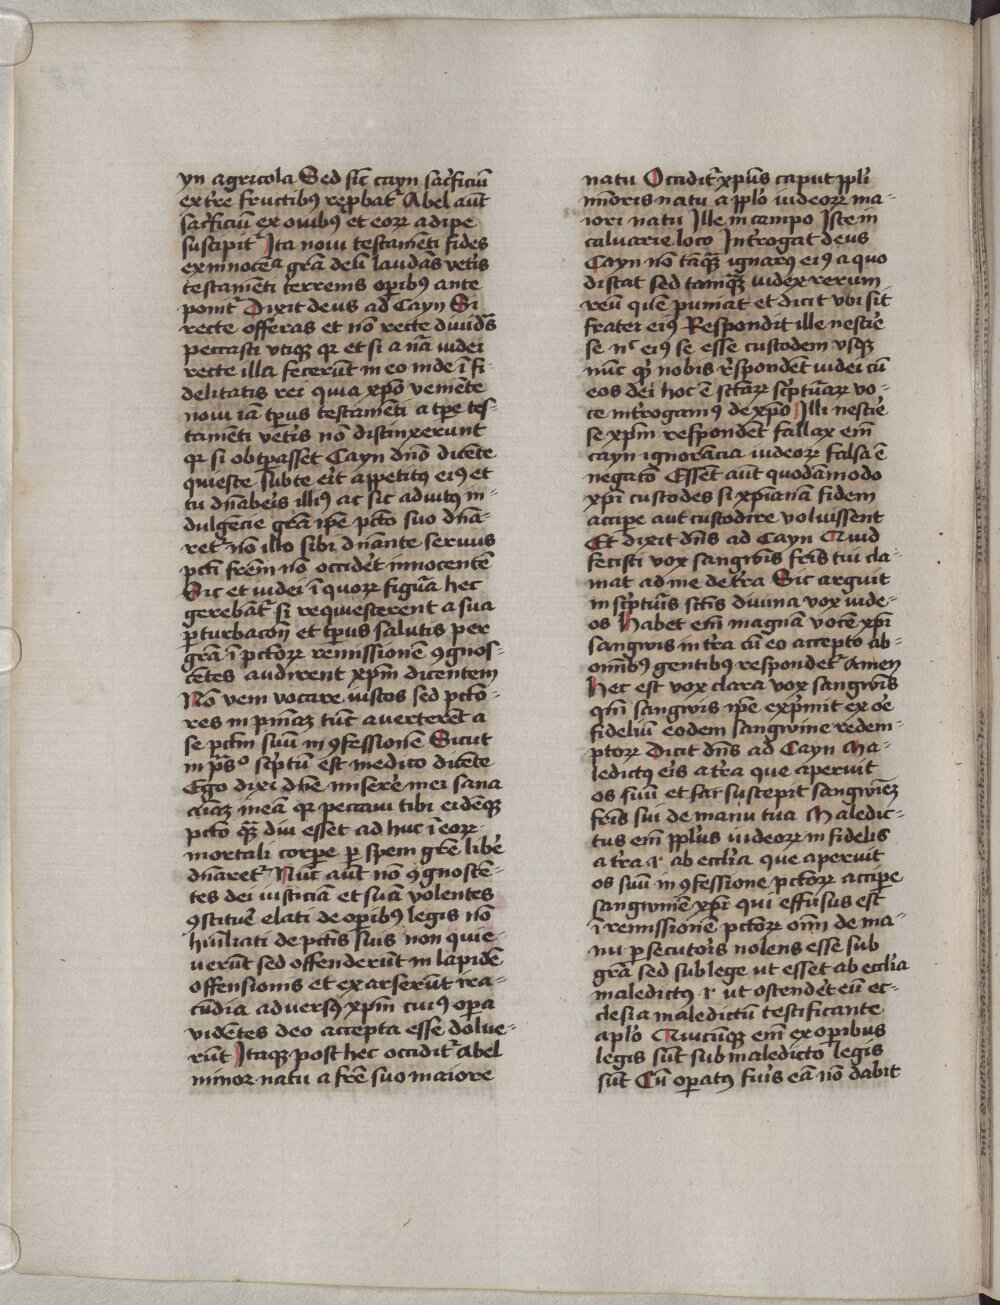 yn agricola Sed sic̄ cayn sac̓ficiū
ex tr̄e fructibꝰ rep̱batᷣ Abel aūt
sac̓ficiū ex ouibꝰ et eoꝝ adipe
suscipitᷣ Ita noui testamēti fides
ex innocēᵃ grā deū laudās vet̓is
testamēti terrenis op̱ibꝰ ante
ponitᷣ Dixit deus ad Cayn Si
recte offeras et nō recte diuidās
peccasti vtiqꝫ qr et si a nā iudei
recte illa fecerūt in eo inde ī fi-
delitatis rei quia xp̄o veniēte
noui iā tp̱us testamēti a tp̱e tes-
tamēti vet̓is nō distinxerunt
qr si obtp̱asset Cayn dn̄o dicēte
quiesce sub te er̓it appetitꝰ eiꝰ et
tu dn̄abeis illiꝰ ac sic adiutꝰ in-
dulgēcie grā ip̄e pctō suo dn̄a-
retᷣ nō illo sibi dn̄ante seruus
pcti frēm nō occidet̓ innocentē
Sic et iudei ī quoꝝ figurā hec
gerebātᷣ si requiescerent a sua
p̱turbacōn et tp̱us salutis per
grā ī pctōꝝ remissionē ꝯgnos-
cētes audirent xp̄m dicentem
Nō veni vocare iustos sed pctō-
res in pn̄iaꝫ tūc auerterēt a
se pctm̄ suū in ꝯfessionē Sicut
in ps̄º sc̓ptū est medico dicēte
Ego dixi dn̄e miserē mei sana
aīaꝫ meā qr peccaui tibi eidēqꝫ
pctō qꝫ diu esset ad huc ī eoꝝ
mortali corp̱e p̱ spem grē̄ libē
dn̄aretᷣ Nūc aūt nō ꝯgnoscē-
tes dei iusticiā et suā volentes
ꝯstitue̓ elati de op̱ibꝰ legis nō
hūiliati de pctīs suis non quie-
uerūt sed offenderūt in lapidē
offensionis et exarserūt ira-
cūdia aduersꝰ xp̄m cuiꝰ opa̱
videntes deo accepta esse dolue-
rūt Itaqꝫ post hec occiditᷣ Abel
minor natu a frē suo maiore
natu Occiditᷣ xp̄us caput ppl̓i
mīoris natu a ppl̓o iudeoꝝ ma-
iori natu Ille in campo Iste in
caluarie loco Int̓rogat deus
Cayn nō tāqꝫ ignarꝰ eiꝰ a quo
distat sed tamqꝫ iudex rerum
reū quē puniat et dicit vbi sit
frater eiꝰ Respondit ille nesci̓e
se nᶜ eiꝰ se esse custodem vsqꝫ
nūc qͥ nobis rn̄spondēt iudei cū
eos dei hoc ē sctāꝝ sc̓pturaꝝ vo-
ce int̓rogamꝰ de xp̄o Illi nesci̓e
se xp̄m respondēt fallax em̄
cayn ignorācia iudeoꝝ falsa ē
negatō Essēt aūt quodāmodo
xp̄i custodes si xp̄ianā fidem
accipe̱ aut custodire voluissent
Et dixit dn̄s ad Cayn Quid
fecisti vox sangwīs fr̄is tui cla-
mat ad me de tr̓a Sic arguit
in sc̓ptur̓is sctīs diuina vox iude-
os Habet em̄ magnā vocē xp̄i
sangwis in tr̓a cū eo accepto ab-
om̄ibꝰ gentibꝰ respondetᷣ Amen
Hec est vox clara vox sangwīs
qm̄ sangwis ip̄e exp̓mit ex oē
fideliū eodem sangwine redem-
ptoꝝ Dicit dn̄s ad Cayn Ma-
ledictꝰ er̓is a tr̓a que aperuit
os suū et fac̄ suscepit sangwīeꝫ
fr̄is sui de manu tua Maledic-
tus em̄ ppl̓us iudeoꝝ infidel̓is
a tr̓a ɪ ab eccl̓ia que aperuit
os suū in ꝯfessione pctōꝝ accipe̱
sangwinē xp̄i qui effusus est
ī remissionē pctōꝝ om̄i de ma-
nu p̱secutor̓is nolens esse sub
grā sed sub lege ut esset ab eccl̓ia
maledictꝰ ɪ ut ostendet̓ eū ec-
clesia maledictū testificante
apl̓o Quicūqꝫ em̄ ex operibus
legis sūt sub maledicto legis
sūt Cū opa̱tꝰ fu̓is eā nō dabit